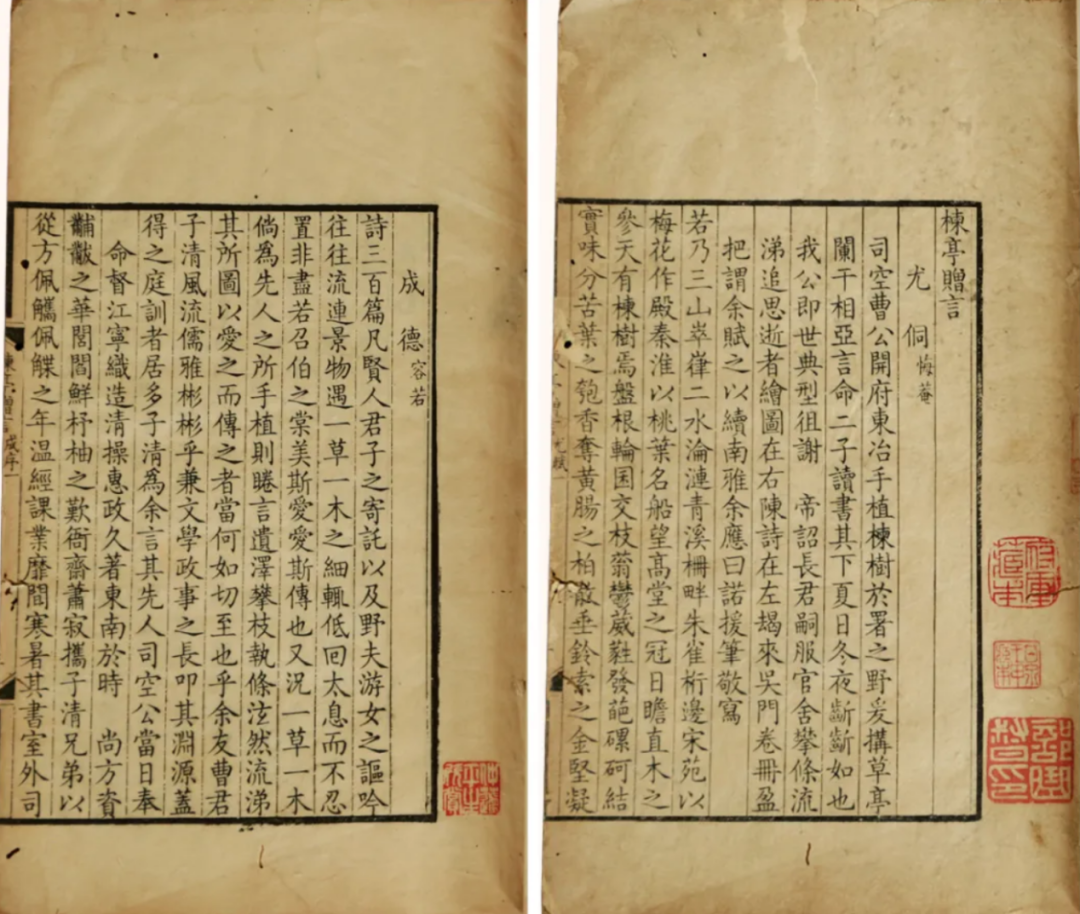 楝亭贈言
尤侗 悔菴
司空曹公開府東冶手植楝樹於署之野爰搆草亭
闌干相亞言命二子讀書其下夏日冬夜斷斷如也
我公即世典型徂謝 帝詔長君嗣服官舍攀條流
涕追思逝者繪圖在右陳詩在左朅來吳門卷冊盈
把謂余賦之以續南雅余應曰諾援筆敬寫
若乃三山崒嵂二水淪漣青溪柵畔朱雀桁邊宋苑以
梅花作殿秦淮以桃葉名船望高堂之冠日瞻直木之
參天有楝樹焉盤根輪囷交枝蓊鬱葳蕤發葩磥砢結
實味分苦葉之匏香奪黃腸之柏散垂鈴索之金堅凝
成德 容若
詩三百篇凡賢人君子之寄託以及野夫游女之謳吟
往往流連景物遇一草一木之細輒低回太息而不忍
置非盡若召伯之棠美斯愛愛斯傳也又況一草一木
倘為先人之所手植則睠言遺澤攀枝執條泫然流涕
其所圖以愛之而傳之者當何如切至也乎余友曹君
子清風流儒雅彬彬乎兼文學政事之長叩其淵源蓋
得之庭訓者居多子清為余言其先人司空公當日奉
命督江寧織造清操惠政久著東南於時 尚方資
黼黻之華閭閻鮮杼柚之歎衙齋蕭寂攜子清兄弟以
從方佩觿佩韘之年温經課業靡間寒暑其書室外司